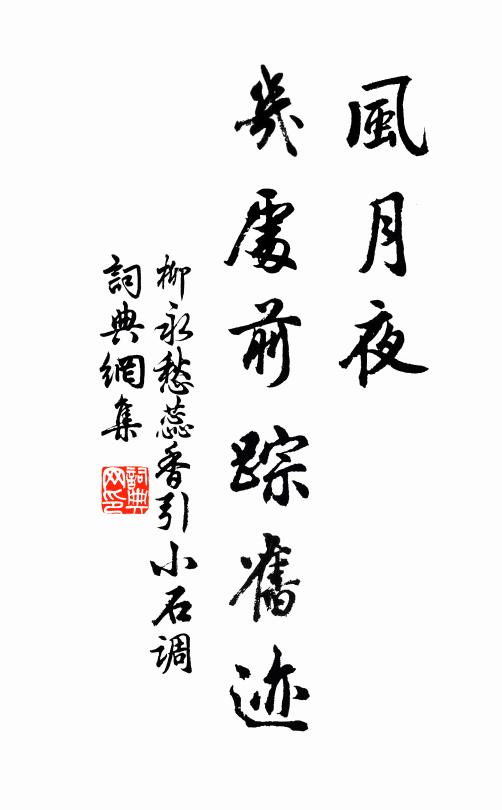 風月夜
幾處前踪舊迹
柳永愁蕊香引小石调
詞典網集
詞典网印